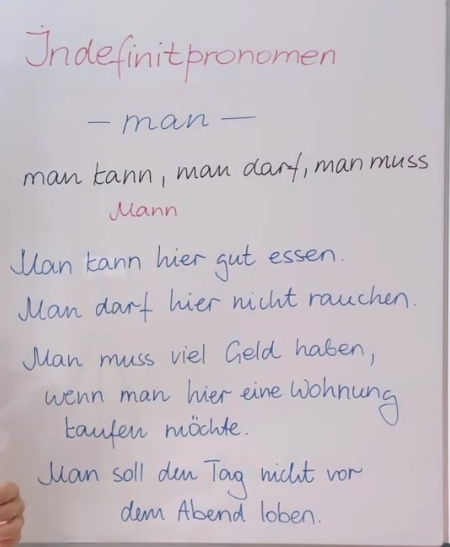 Indefinitpronomen
– man –
man kann, man darf, man muss
Mann
Man kann hier gut essen.
Man darf hier nicht rauchen.
Man muss viel Geld haben,
wenn man hier eine Wohnung
kaufen möchte.
Man soll den Tag nicht vor
dem Abend loben.